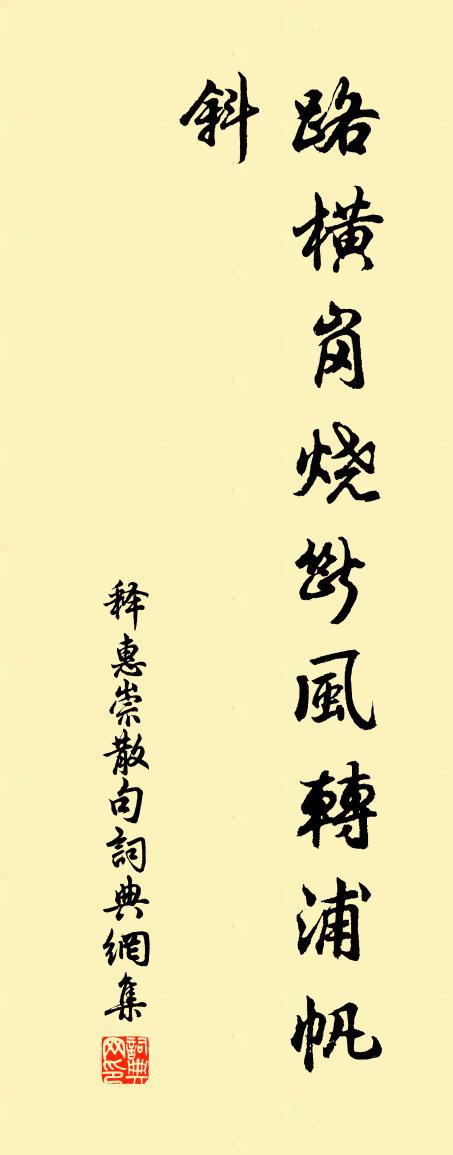 路橫岗烧斷風轉浦帆
斜
释惠崇散句詞典網集
詞典网印